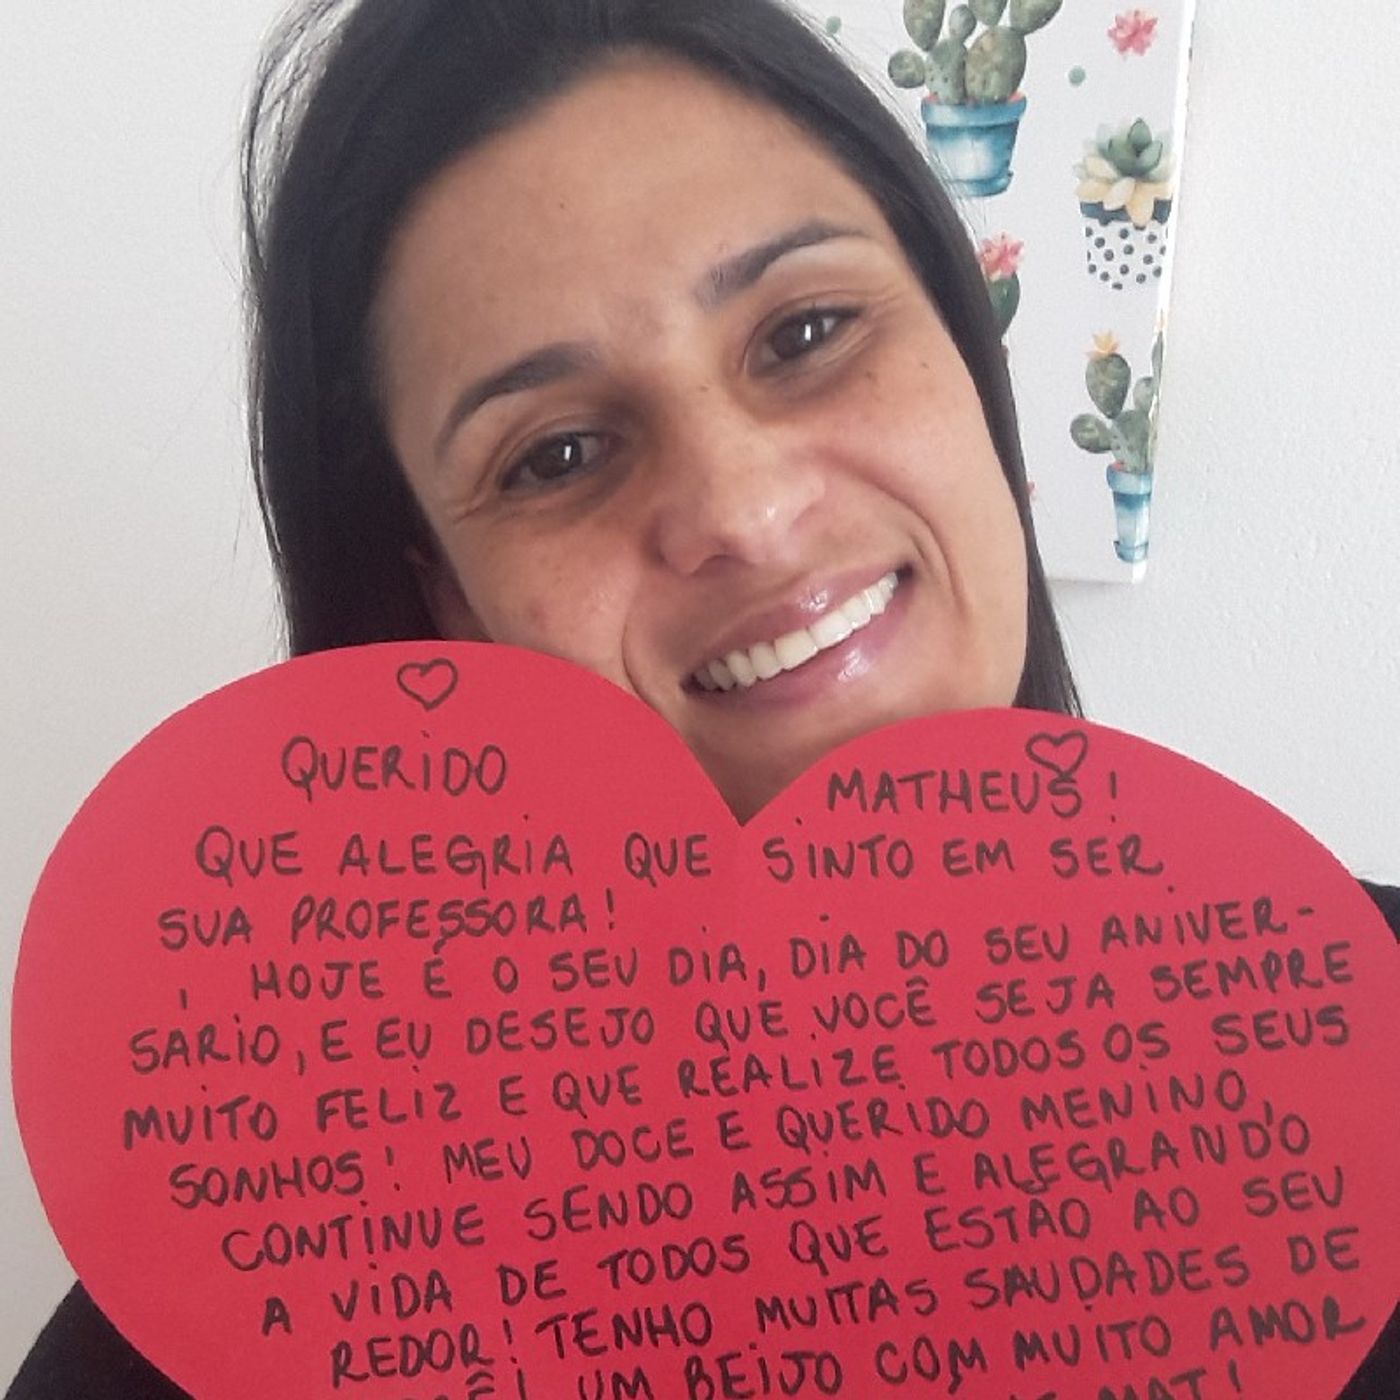 QUERIDO MATHEUS!
QUE ALEGRIA QUE SINTO EM SER
SUA PROFESSORA!
HOJE É O SEU DIA, DIA DO SEU ANIVER-
SÁRIO, E EU DESEJO QUE VOCÊ SEJA SEMPRE
MUITO FELIZ E QUE REALIZE TODOS OS SEUS
SONHOS! MEU DOCE E QUERIDO MENINO,
CONTINUE SENDO ASSIM E ALEGRANDO
A VIDA DE TODOS QUE ESTÃO AO SEU
REDOR! TENHO MUITAS SAUDADES DE
UM BEIJO COM MUITO AMOR
MAT!